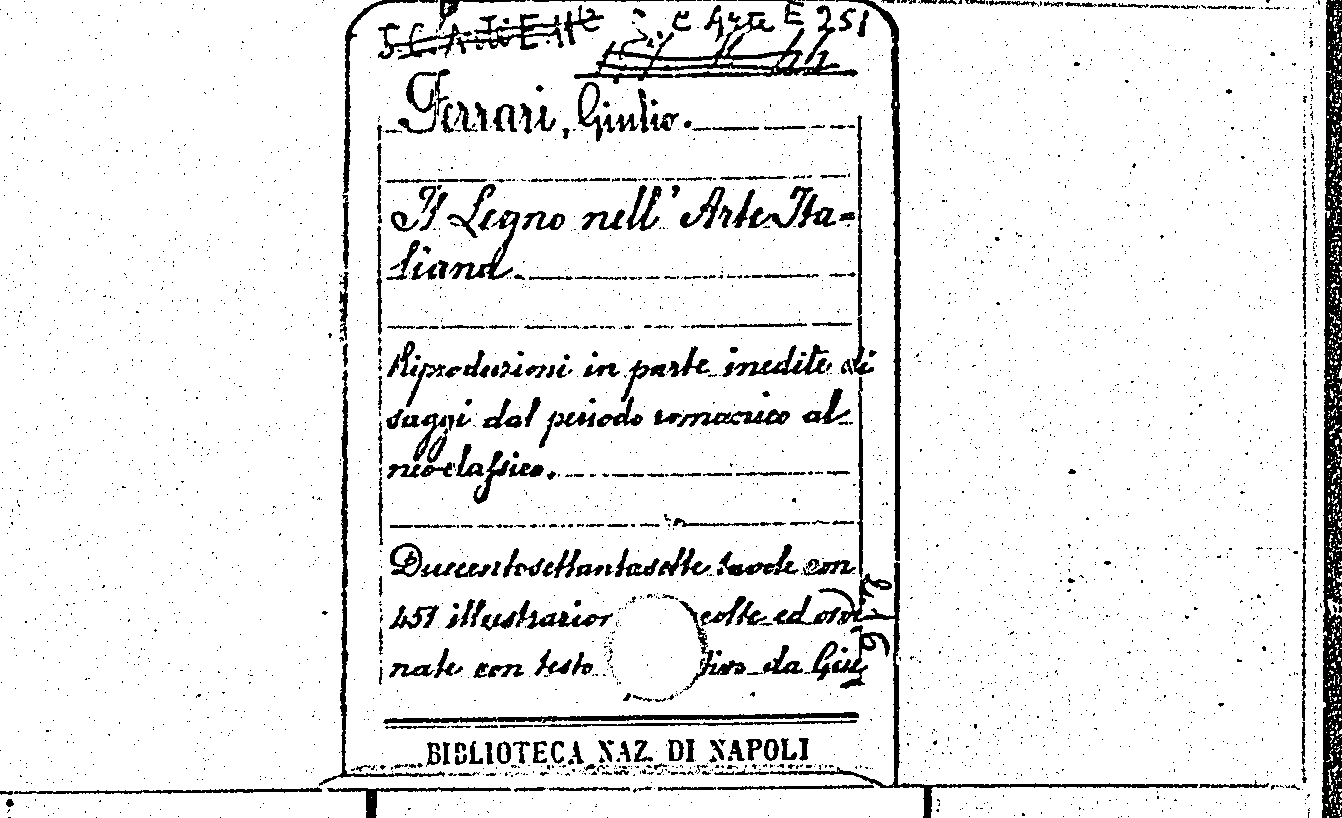 S. C. Arte E 251
Ferrari, Giulio.
Il Legno nell' Arte Ita=
liana
Riproduzioni in parte inedite di
saggi dal periodo romanico al
neo-classico.
Duecentosettantasette tavole con
451 illustrazion colte ed ordi
nate con testo tivo da Giu
BIBLIOTECA NAZ. DI NAPOLI